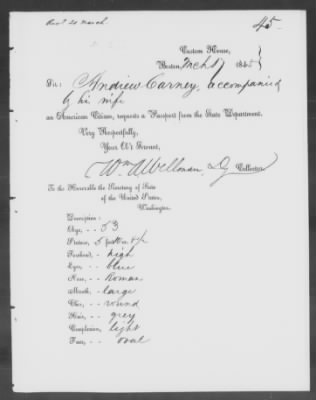 Rec'd 20 March
45
Custom House,
Boston, Mch 17 1845
Sir:
Andrew Carney, accompanied
by his wife
an American Citizen, requests a Passport from the State Department.
Very Respectfully,
Your Ob't Servant,
Wm A Wellman, Collector
To the Honorable the Secretary of State
of the United States,
Washington.
Description:
Age, - - 53
Stature, 5 feet
Forehead, - high
Eyes, - - blue
Nose, - - Roman
Mouth, - large
Chin, - - round
Hair, - - grey
Complexion, light
Face, - - oval